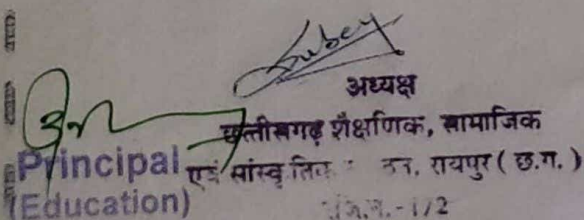 Dubey
अध्यक्ष
छत्तीसगढ़ शैक्षणिक, सामाजिक
एवं सांस्कृतिक रायपुर ( छ.ग. )
Principal
(Education)